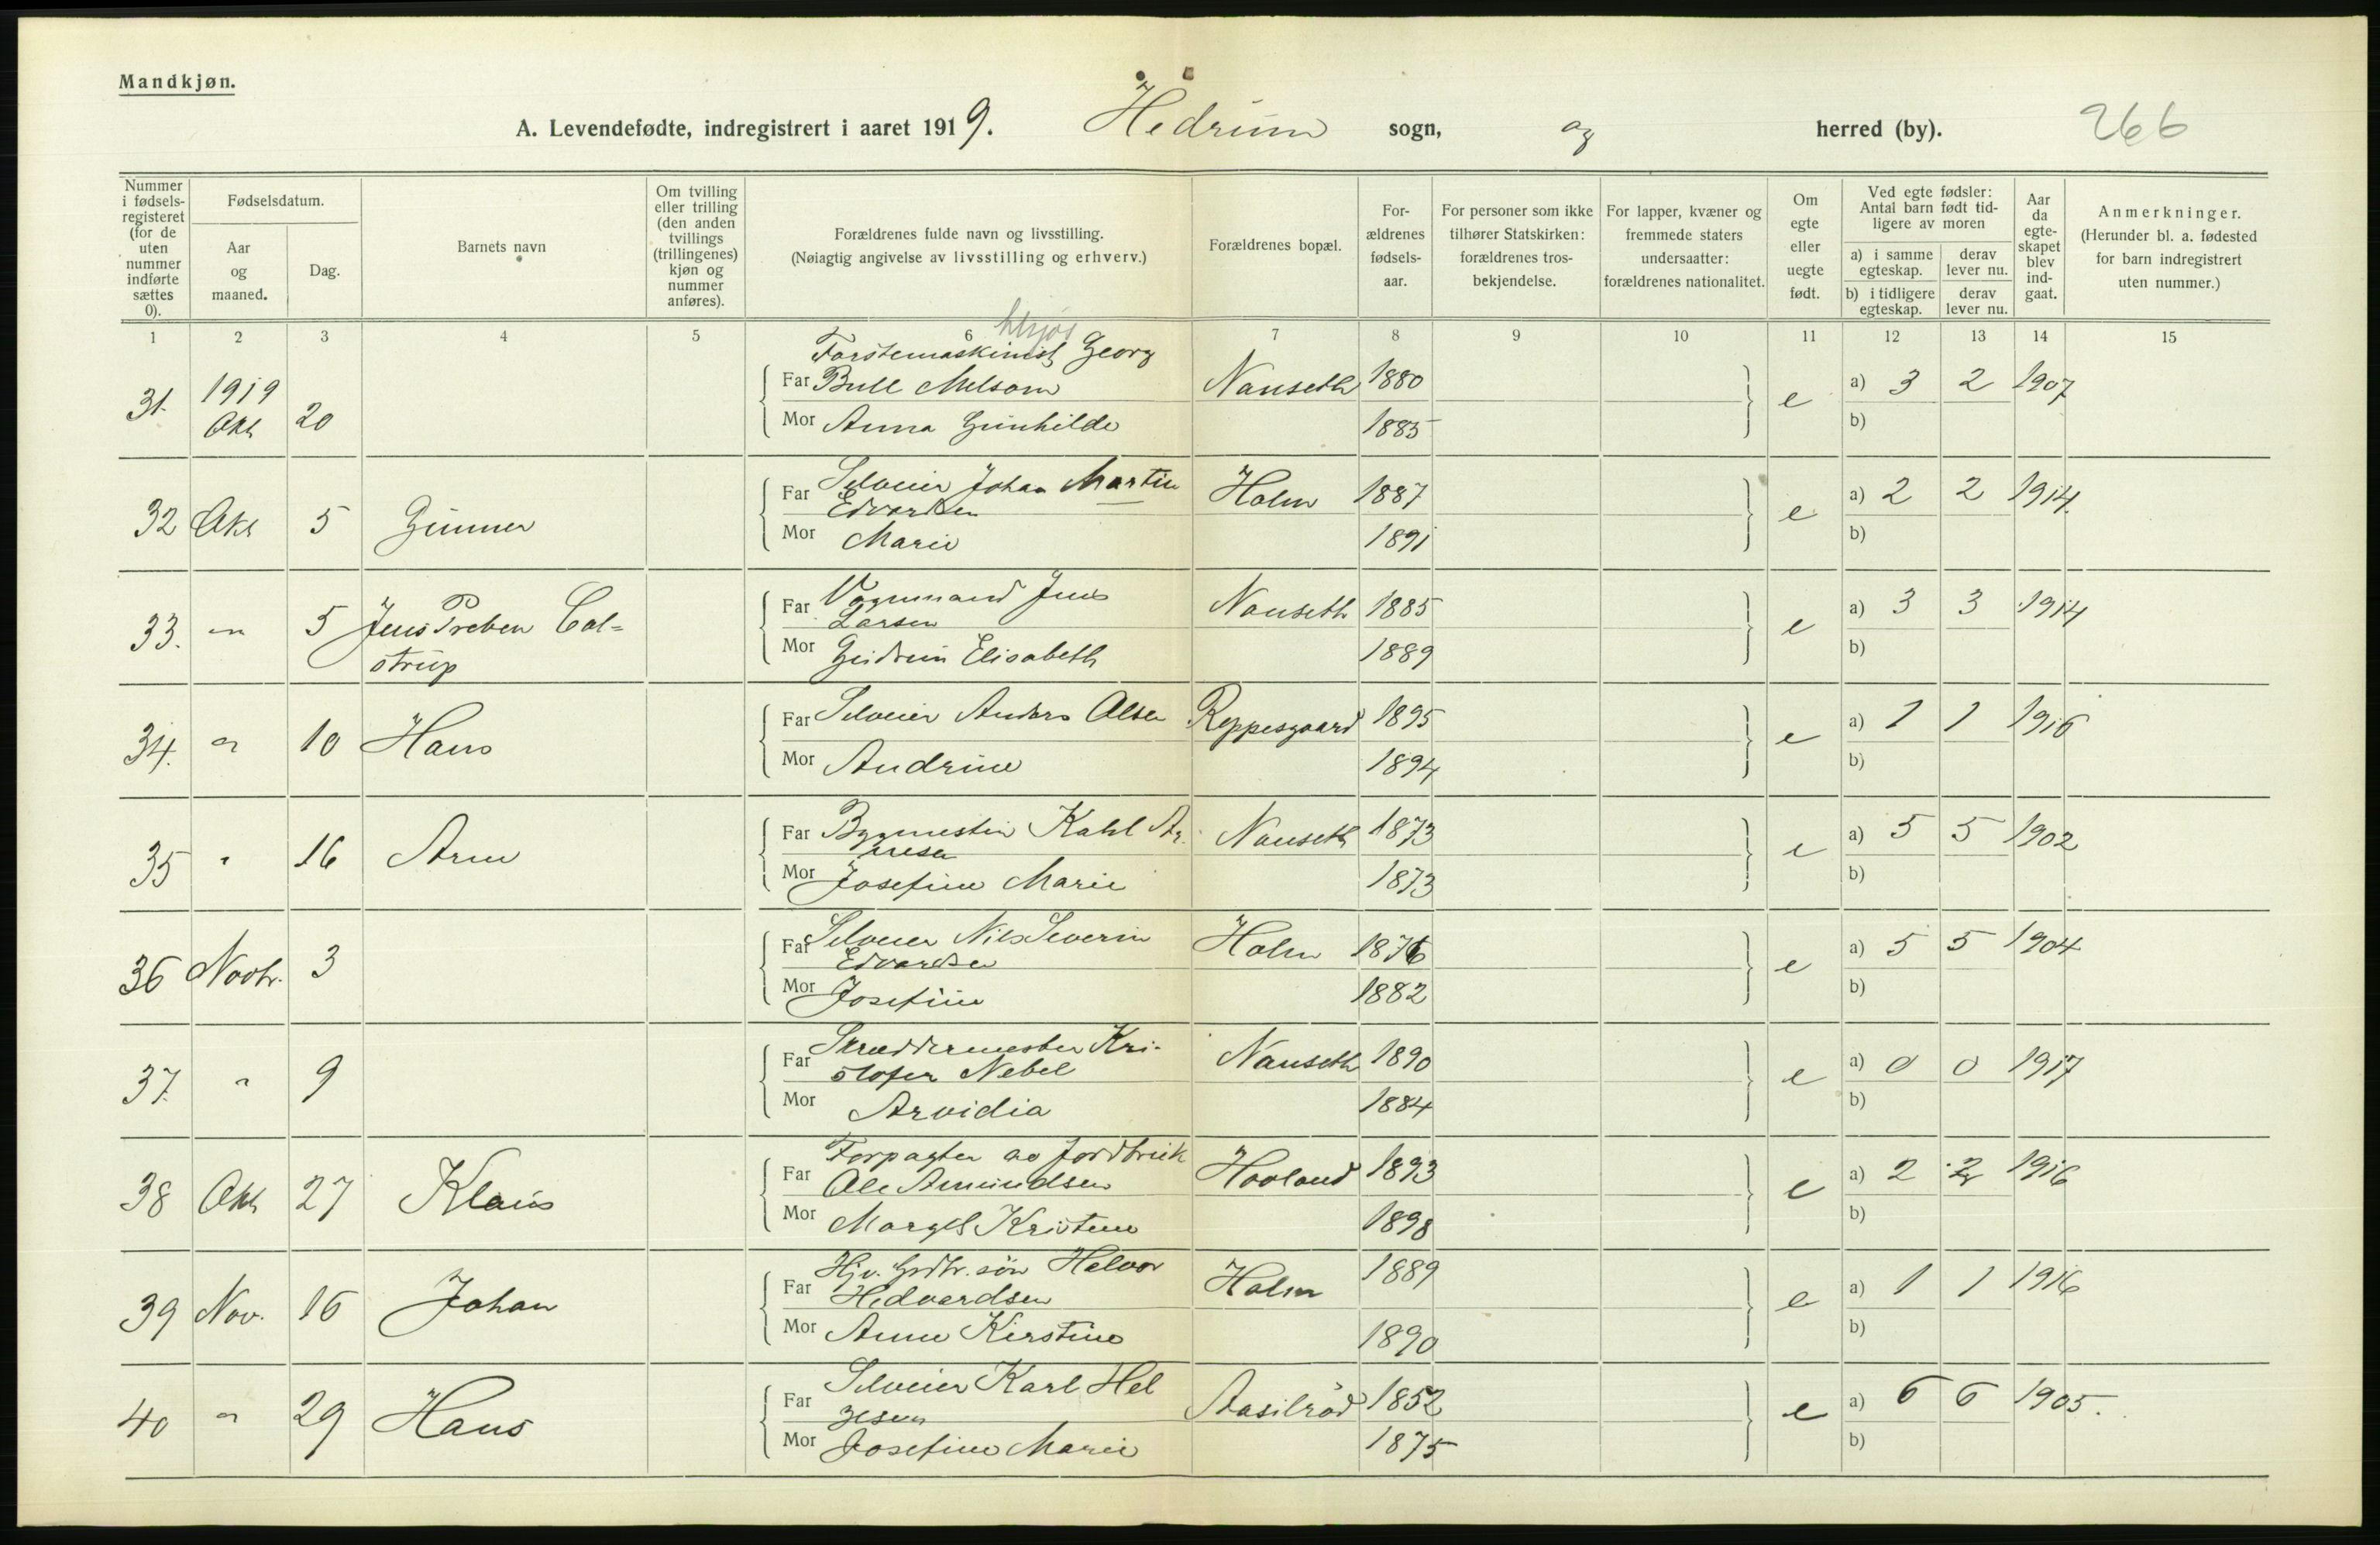 Mandkjøn.
A. Levendefødte, indregistrert i aaret 1919. Hedrum sogn, og herred (by). 266
Nummer i fødsels-registeret (for de uten nummer indførte sættes 0).
Fødselsdatum.
Aar og maaned.
Dag.
Barnets navn
Om tvilling eller trilling (den anden tvillings (trillingenes) kjøn og nummer anføres).
Forældrenes fulde navn og livsstilling.
(Nøiagtig angivelse av livsstilling og erhverv.)
Forældrenes bopæl.
For-ældrenes fødsels-aar.
For personer som ikke tilhører Statskirken: forældrenes tros-bekjendelse.
For lapper, kvæner og fremmede staters undersaatter: forældrenes nationalitet.
Om egte eller uegte født.
Ved egte fødsler: Antal barn født tid-ligere av moren
a) i samme egteskap. derav lever nu.
b) i tidligere egteskap. derav lever nu.
Aar da egte-skapet blev ind-gaat.
Anmerkninger.
(Herunder bl. a. fødested for barn indregistrert uten nummer.)
1 2 3 4 5 6 7 8 9 10 11 12 13 14 15
Førstemaskinist Georg
31. 1919 Okt 20 Far Bull Melsom Nanseth 1880 e a) 3 2 1907
Mor Anna Gunhilde 1885 b)
32 Okt 5 Gunner Far Selveier Johan Martin Holm 1887 e a) 2 2 1914.
Edvardsen
Mor Marie 1891 b)
33. " 5 Jens Preben Col= Far Vognmand Jens Nanseth 1885 e a) 3 3 1914
strup Larsen
Mor Gudrun Elisabeth 1889 b)
34. " 10 Hans Far Selveier Anders Olsen Reppesgaard 1895 e a) 1 1 1916
Mor Andrine 1894 b)
35 " 16 Arne Far Bygmester Kahl Nanseth 1873 e a) 5 5 1902
Mor Josefine Marie 1873 b)
36 Novbr. 3 Far Selveier Nils Severin Holm 1876 e a) 5 5 1904
Edvardsen
Mor Josefine 1882 b)
37. " 9 Far Skræddermester Kri- Nanseth 1890 e a) 0 0 1917
stofer Nebel
Mor Arvidia 1884 b)
Forpagter av Jordbruk
38 Okt 27 Klaus Far Ole Amundsen Hovland 1893 e a) 2 2 1916
Mor Margit Kristine 1898 b)
Hjv. Grdbr. søn Halvor
39 Nov. 16 Johan Far Hedvardsen Holm 1889 e a) 1 1 1916
Mor Anne Kirstine 1890 b)
40 " 29 Hans Far Selveier Karl Hel Aasilrød 1852 e a) 6 6 1905.
gesen
Mor Josefine Marie 1875 b)